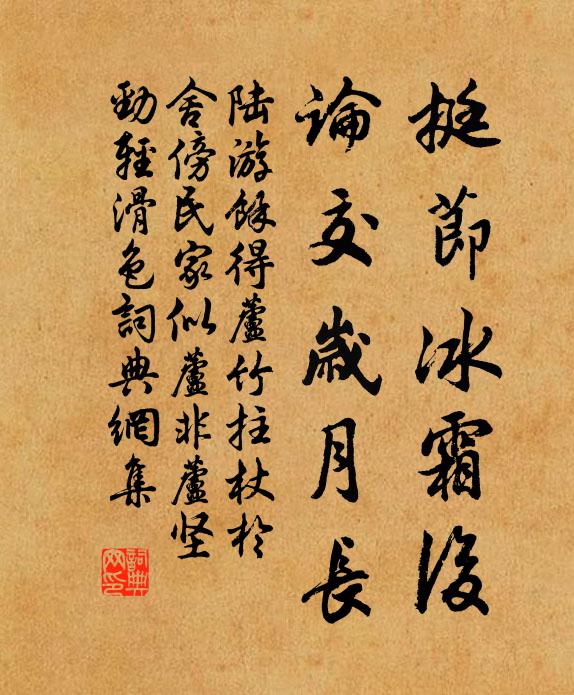 挺節冰霜後
論交歲月長
陆游餘得蘆竹拄杖於
舍傍民家似蘆非蘆坚
勁輕滑色詞典網集
詞典
网印